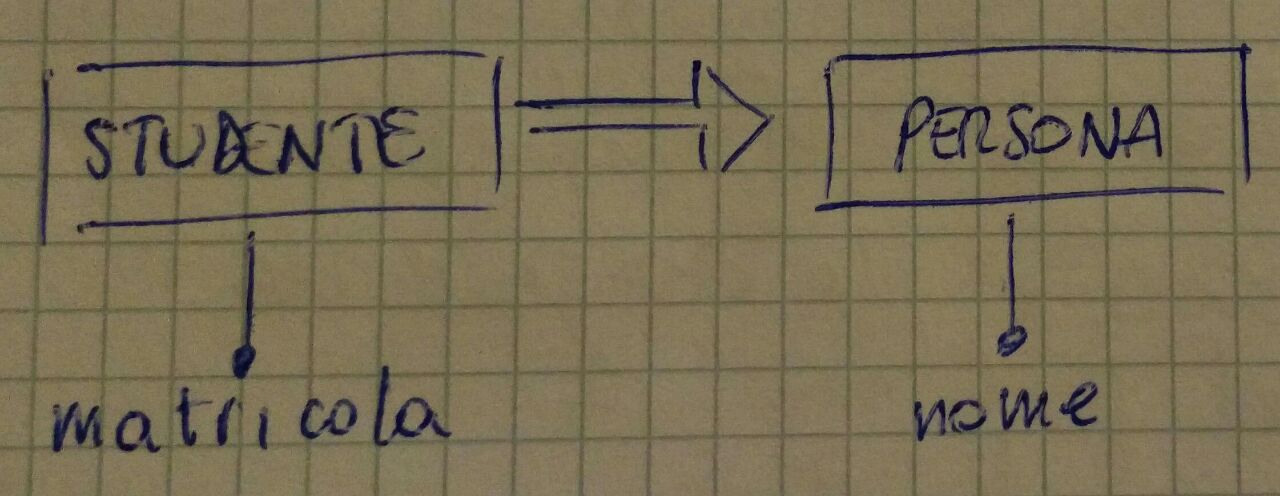 STUDENTE PERSONA
matricola nome